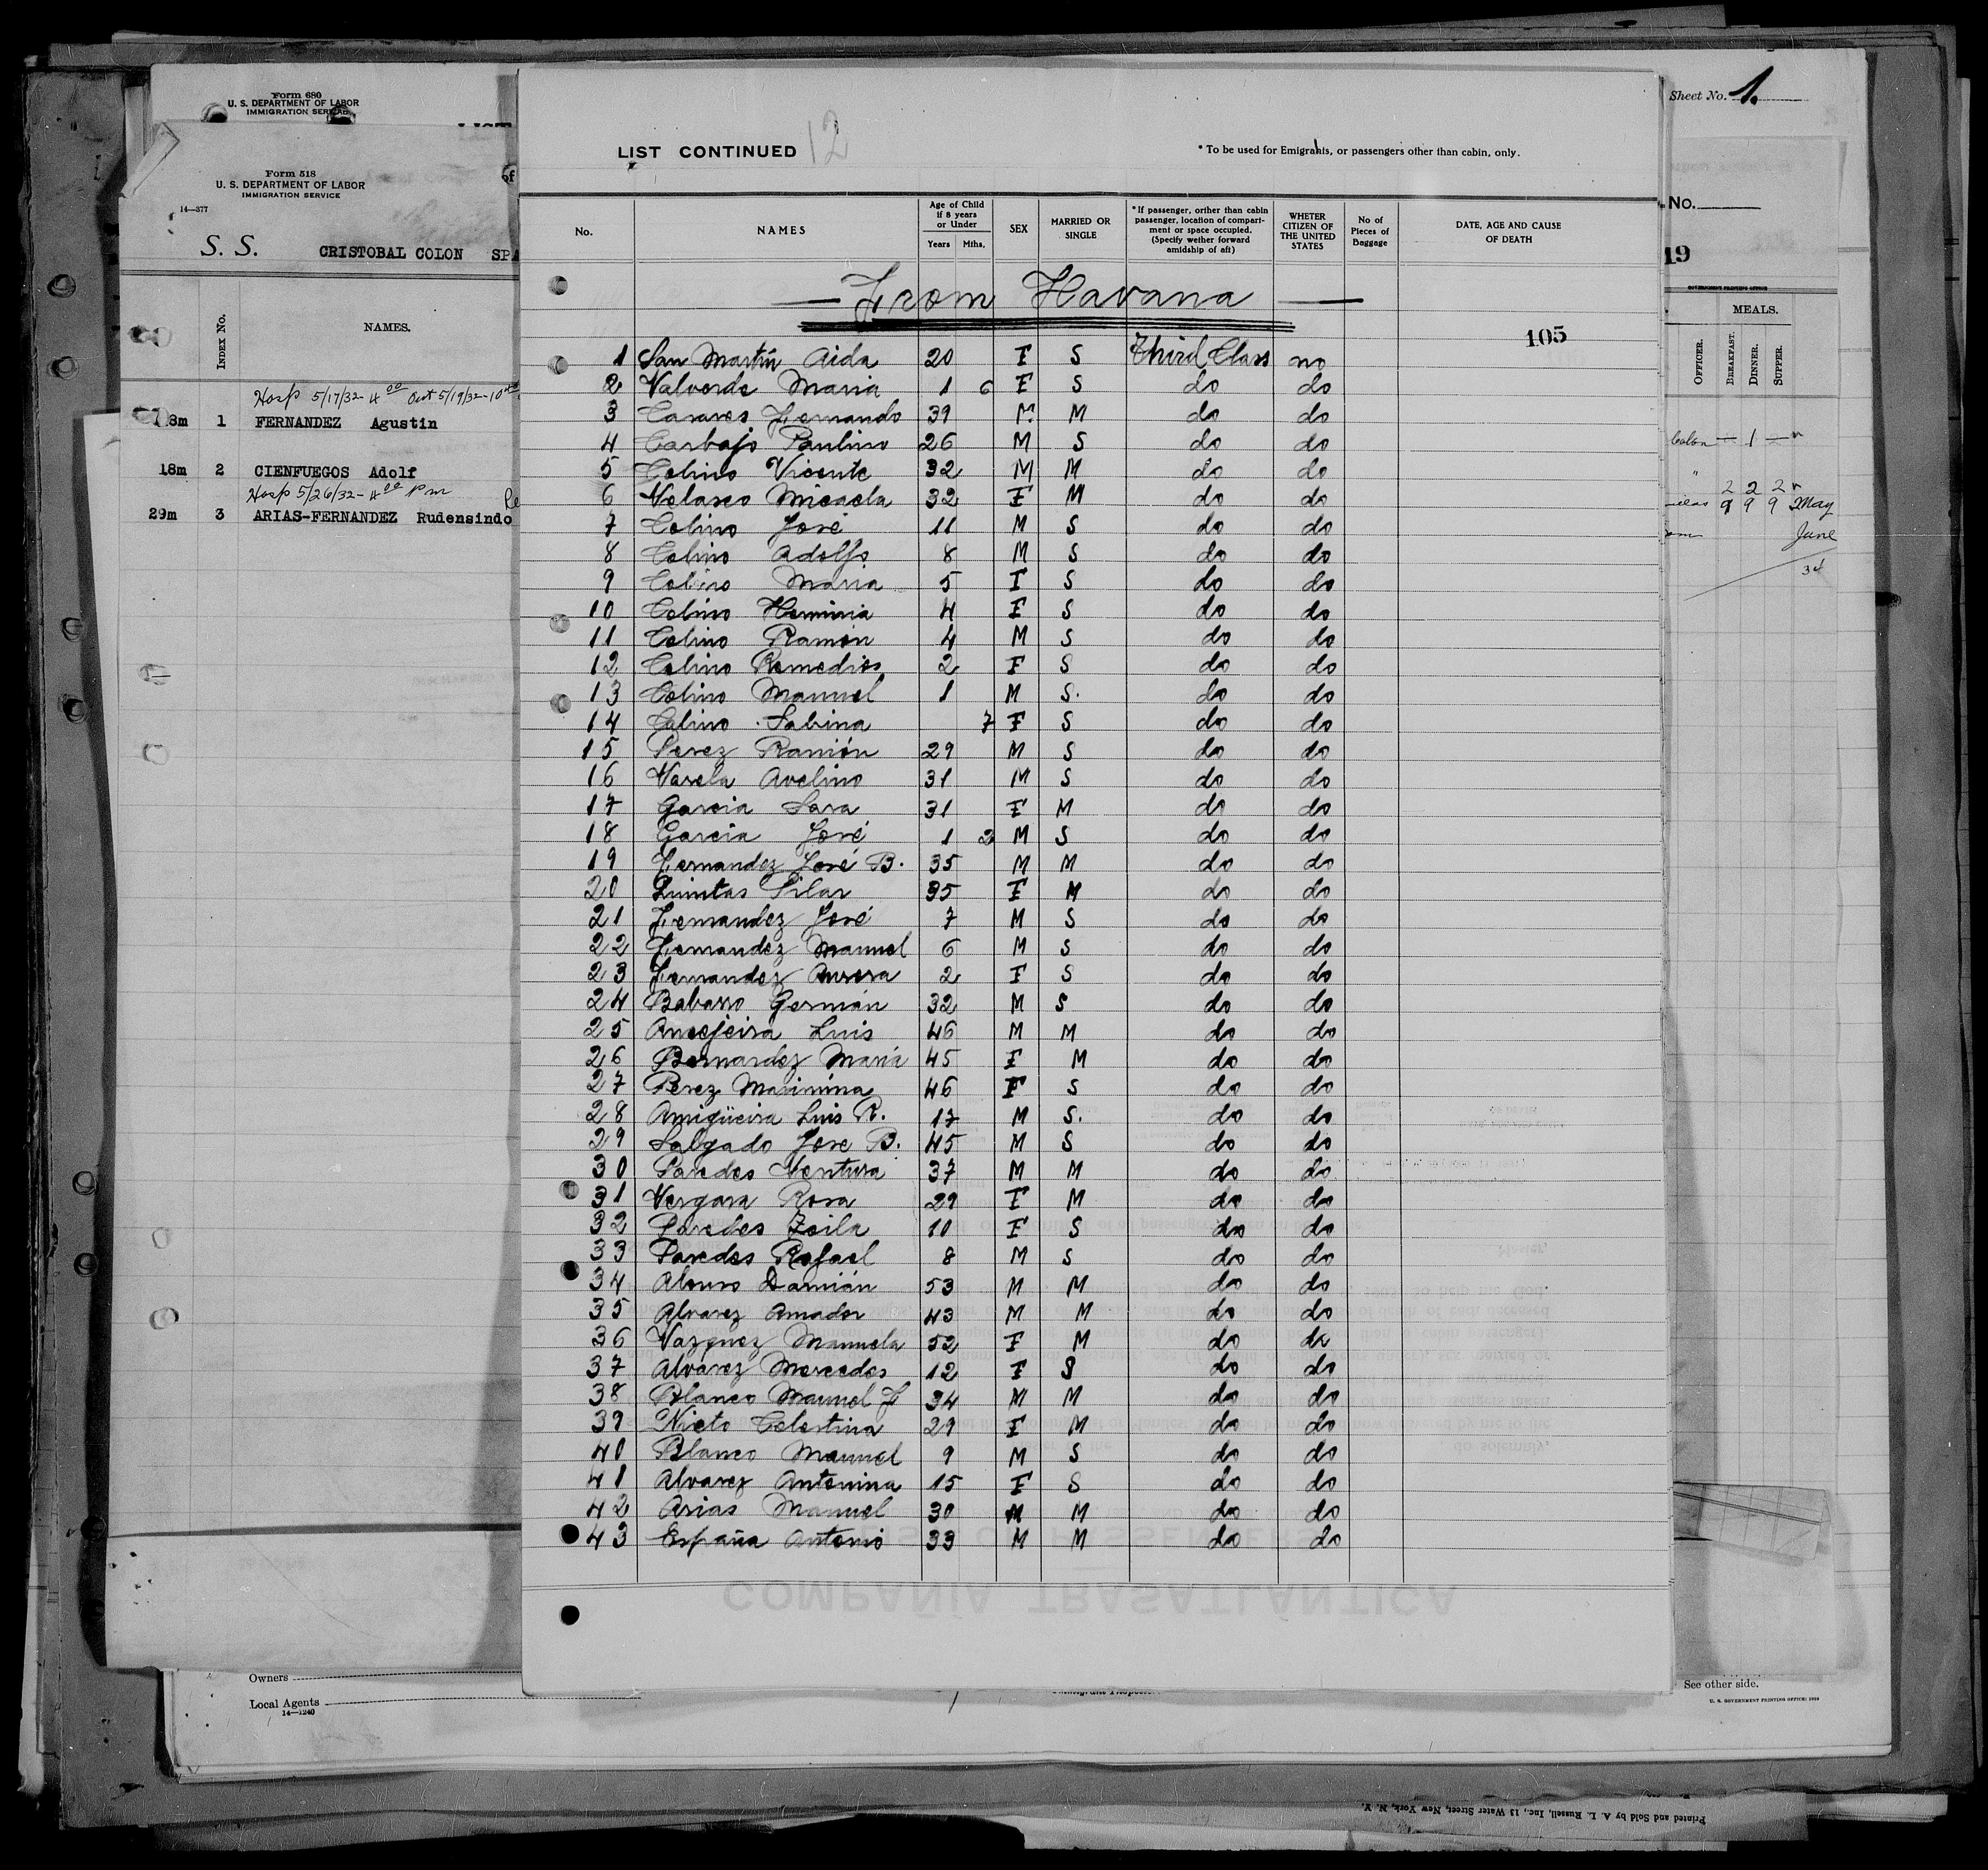 Form 680
U. S. DEPARTMENT OF LABOR
IMMIGRATION SERVICE
Form 518
U. S. DEPARTMENT OF LABOR
IMMIGRATION SERVICE
14—377
S. S. CRISTOBAL COLON SPA
INDEX No. NAMES.
Hosp 5/17/32 - 4 00 Out 5/19/32 - 10
18m 1 FERNANDEZ Agustin
18m 2 CIENFUEGOS Adolf
Hosp 5/26/32 - 4 00 pm
29m 3 ARIAS-FERNANDEZ Rudensindo
Owners
Local Agents
14—1240
12
LIST CONTINUED
* To be used for Emigrants, or passengers other than cabin, only.
No. NAMES Age of Child if 8 years or Under Years Mths. SEX MARRIED OR SINGLE * If passenger, orither than cabin passenger, location of compartment or space occupied. (Specify wether forward amidship of aft) WHETER CITIZEN OF THE UNITED STATES No of Pieces of Baggage DATE, AGE AND CAUSE OF DEATH
— From Havana —
105
1 San Martín Aida 20 F S Third Class no
2 Valverde Maria 1 6 F S do do
3 Casares Fernando 39 M M do do
4 Carbajo Paulino 26 M S do do
5 Colino Vicente 32 M M do do
6 Velasco Micaela 32 F M do do
7 Colino José 11 M S do do
8 Colino Adolfo 8 M S do do
9 Colino Maria 5 F S do do
10 Colino Herminia 4 F S do do
11 Colino Ramón 4 M S do do
12 Colino Remedios 2 F S do do
13 Colino Manuel 1 M S. do do
14 Colino Sabina 7 F S do do
15 Perez Ramón 29 M S do do
16 Varela Avelino 31 M S do do
17 Garcia Sara 31 F M do do
18 Garcia José 1 2 M S do do
19 Fernandez José B. 35 M M do do
20 Quintas Pilar 35 F M do do
21 Fernandez José 7 M S do do
22 Fernandez Manuel 6 M S do do
23 Fernandez Aurora 2 F S do do
24 Babarro Germán 32 M S do do
25 Luis 46 M M do do
26 Bernardez Maria 45 F M do do
27 Perez Maximina 46 F S do do
28 Amigüeira Luis R. 17 M S. do do
29 Salgado Jose B. 45 M S do do
30 Paredes Ventura 37 M M do do
31 Vergara Rosa 29 F M do do
32 Paredes Zoila 10 F S do do
33 Paredes Rafael 8 M S do do
34 Alonso Damián 53 M M do do
35 Alvarez Amador 43 M M do do
36 Vazquez Manuela 52 F M do do
37 Alvarez Mercedes 12 F S do do
38 Blanco Manuel F 34 M M do do
39 Nieto Celestina 29 F M do do
40 Blanco Manuel 9 M S do do
41 Alvarez Antonina 15 F S do do
42 Arias Manuel 30 M M do do
43 España Antonio 33 M M do do
COMPAÑIA TRASATLANTICA
Sheet No. 1.
No.
19
GOVERNMENT PRINTING OFFICE
MEALS.
OFFICER. BREAKFAST. DINNER. SUPPER.
Colon — 1 —
2 2 2
9 9 9 May
June
34
See other side.
U. S. GOVERNMENT PRINTING OFFICE:
Printed and Sold by A. L. Russell, Inc., 13 Water Street, New York, N. Y.